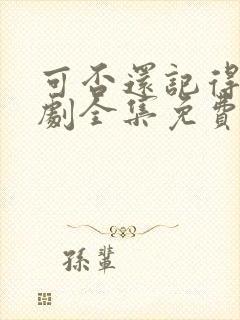 可否還記得
劇全集免費
孫輩